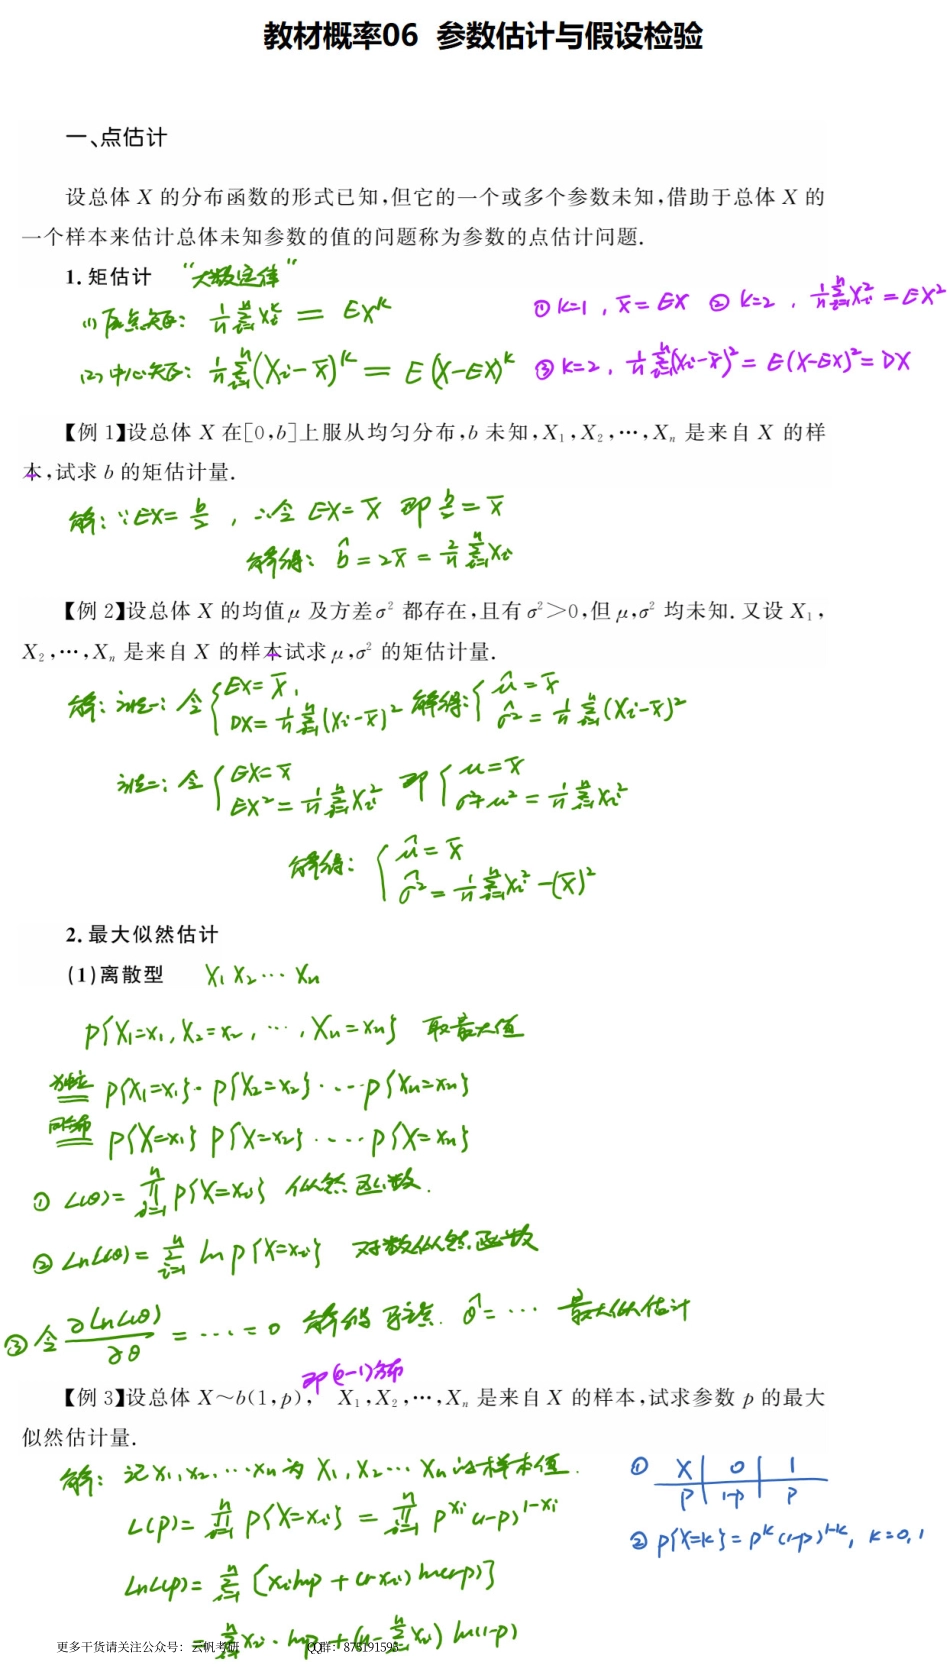 教材概率06 参数估计与假设检验
一、点估计
设总体 X 的分布函数的形式已知,但它的一个或多个参数未知,借助于总体 X 的
一个样本来估计总体未知参数的值的问题称为参数的点估计问题.
1. 矩估计 “大数定律”
(1) 原点矩: 1/n ∑_{i=1}^n X_i^k = EX^k ① k=1, X̄ = EX ② k=2, 1/n ∑_{i=1}^n X_i^2 = EX^2
(2) 中心矩: 1/n ∑_{i=1}^n (X_i - X̄)^k = E(X-EX)^k ③ k=2, 1/n ∑_{i=1}^n (X_i - X̄)^2 = E(X-EX)^2 = DX
【例 1】设总体 X 在[0,b]上服从均匀分布,b 未知,X₁,X₂,…,Xₙ 是来自 X 的样
本,试求 b 的矩估计量.
解: ∵ EX = b/2, ∴ 令 EX = X̄ 即 b/2 = X̄
解得: b̂ = 2X̄ = 2/n ∑_{i=1}^n X_i
【例 2】设总体 X 的均值 μ 及方差 σ² 都存在,且有 σ²>0,但 μ,σ² 均未知.又设 X₁,
X₂,…,Xₙ 是来自 X 的样本试求 μ,σ² 的矩估计量.
解: 法一: 令 { EX = X̄, DX = 1/n ∑_{i=1}^n (X_i - X̄)^2 解得: { μ̂ = X̄ σ̂² = 1/n ∑_{i=1}^n (X_i - X̄)^2
法二: 令 { EX = X̄ EX² = 1/n ∑_{i=1}^n X_i^2 即 { μ = X̄ σ²+μ² = 1/n ∑_{i=1}^n X_i^2
解得: { μ̂ = X̄ σ̂² = 1/n ∑_{i=1}^n X_i^2 - (X̄)^2
2. 最大似然估计
(1)离散型 X₁ X₂ … Xₙ
P{X₁=x₁, X₂=x₂, …, Xₙ=xₙ} 取最大值
独立 = P{X₁=x₁}·P{X₂=x₂}·…·P{Xₙ=xₙ}
同分布 = P{X=x₁} P{X=x₂}·…·P{X=xₙ}
① L(θ) = ∏_{i=1}^n P{X=x_i} 似然函数.
② lnL(θ) = ∑_{i=1}^n ln P{X=x_i} 对数似然函数
③ 令 ∂lnL(θ)/∂θ = … = 0 解得 驻点. θ̂ = … 最大似估计
即(0-1)分布
【例 3】设总体 X～b(1,p), X₁,X₂,…,Xₙ 是来自 X 的样本,试求参数 p 的最大
似然估计量.
解: 记 x₁,x₂,…xₙ 为 X₁,X₂…Xₙ 的样本值. ① X 0 1
P 1-p p
L(p) = ∏_{i=1}^n P{X=x_i} = ∏_{i=1}^n p^{x_i} (1-p)^{1-x_i}
② P{X=k} = p^k (1-p)^{1-k}, k=0,1
lnL(p) = ∑_{i=1}^n [x_i lnp + (1-x_i) ln(1-p)]
= ∑_{i=1}^n x_i · lnp + (n - ∑_{i=1}^n x_i) ln(1-p)
更多干货请关注公众号: 云帆考研 QQ群: 873191593